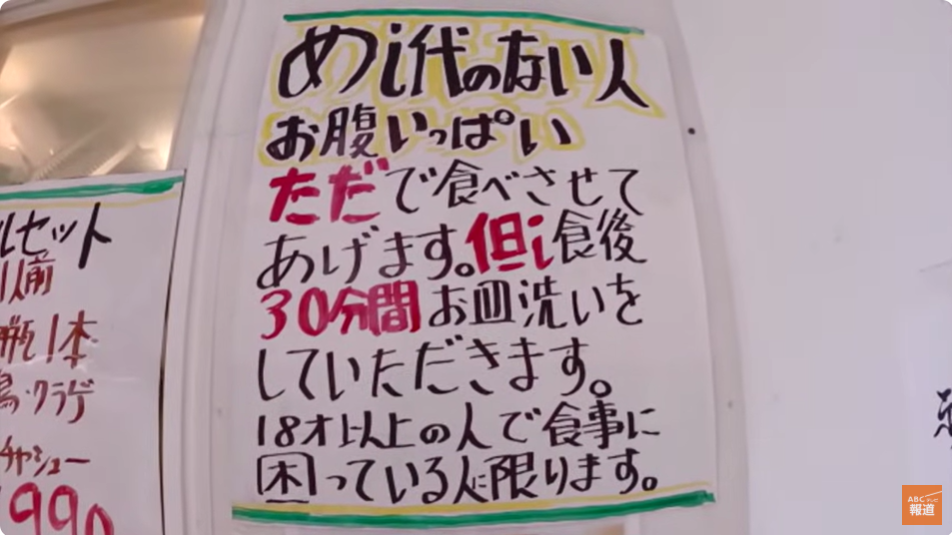 めし代のない人
お腹いっぱい
ただで食べさせて
あげます。但し食後
30分間お皿洗いを
していただきます。
18才以上の人で食事に
困っている人に限ります。
ルセット
1人前
瓶1本
クラゲ
チャシュー
990
ABCテレビ
報道